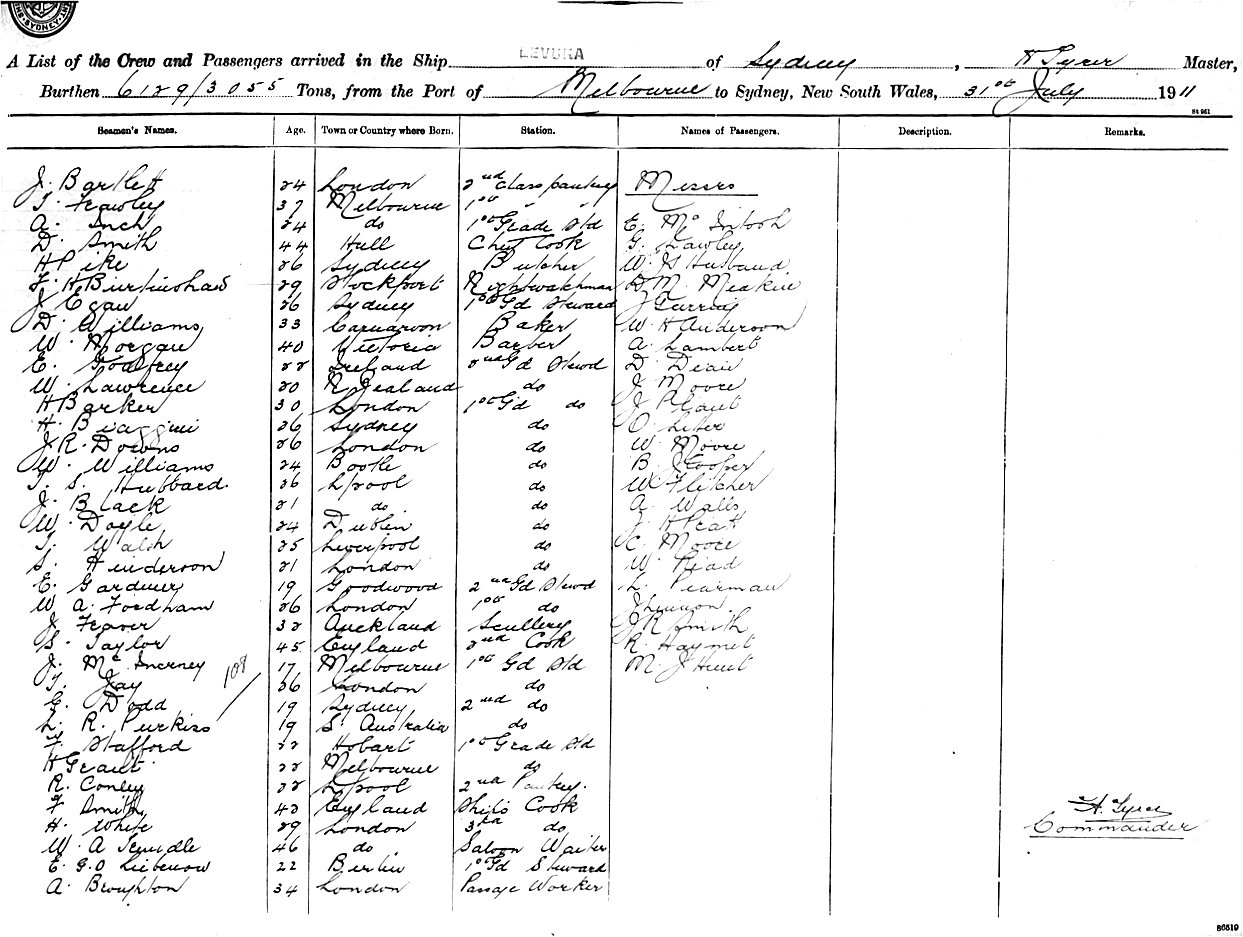 SYDNEY
A List of the Crew and Passengers arrived in the Ship LEVUKA of Sydney, H Tyrer Master,
Burthen 6129/3055 Tons, from the Port of Melbourne to Sydney, New South Wales, 31st July 1911
S4 951
Seamen's Names. Age. Town or Country where Born. Station. Names of Passengers. Description. Remarks.
J. Bartlett 24 London 2nd Class pantry Messrs
T. Frawley 37 Melbourne 1st " "
A. Inch 24 do 1st Grade Std E. Mc Intosh
D. Smith 44 Hull Chef Cook G. Lawley
H Pike 26 Sydney Butcher W. G Husband
F. H Burtinshaw 29 Stockport Nightwatchman M. Meakin
J. Egan 26 Sydney 1st Gd Steward J
D. Williams 33 Carnarvon Baker W. H Anderson
W. Morgan 40 Victoria Barber A. Lambert
E. Godfrey 22 Ireland 2nd Gd Stewd D. Dean
W. Lawrence 20 N Zealand do J. Moore
H Barker 30 London 1st Gd do J Plant
H. Biaggini 26 Sydney do O.
J. R. Downs 26 London do W. Moore
W. Williams 24 Bootle do B. J Cooper
T. S. Hubbard 26 Lpool do W. Fletcher
J. Black 21 do do A. Walls
W. Doyle 24 Dublin do J. H Pratt
T. Walsh 25 Liverpool do C. Moore
S. Henderson 21 London do W. Read
E. Gardiner 19 Goodwood 2nd Gd Stewd L. Pearman
W. A. Fordham 26 London 1st do J Lennon
J. Feaver 32 Auckland Scullery J R Smith
S. Taylor 45 England 2nd Cook R. Haymet
J. Mc Inerney 17 Melbourne 1st Gd Std M. J Hunt
T. Jay 26 London do
108
G. Dodd 19 Sydney 2nd do
L. R. Purkiss 19 S. Australia do
F. Stafford 22 Hobart 1st Grade Std
H Grant 22 Melbourne do
R. Conley 22 Lpool 2nd Pantry.
F Smith 43 England Ship's Cook
H. White 29 London 3rd do
H. Tyrer
Commander
W. A 46 do Saloon Waiter
E. G. O Liebenow 22 Berlin 1st Gd Steward
A. Broughton 34 London Passage Worker
86519